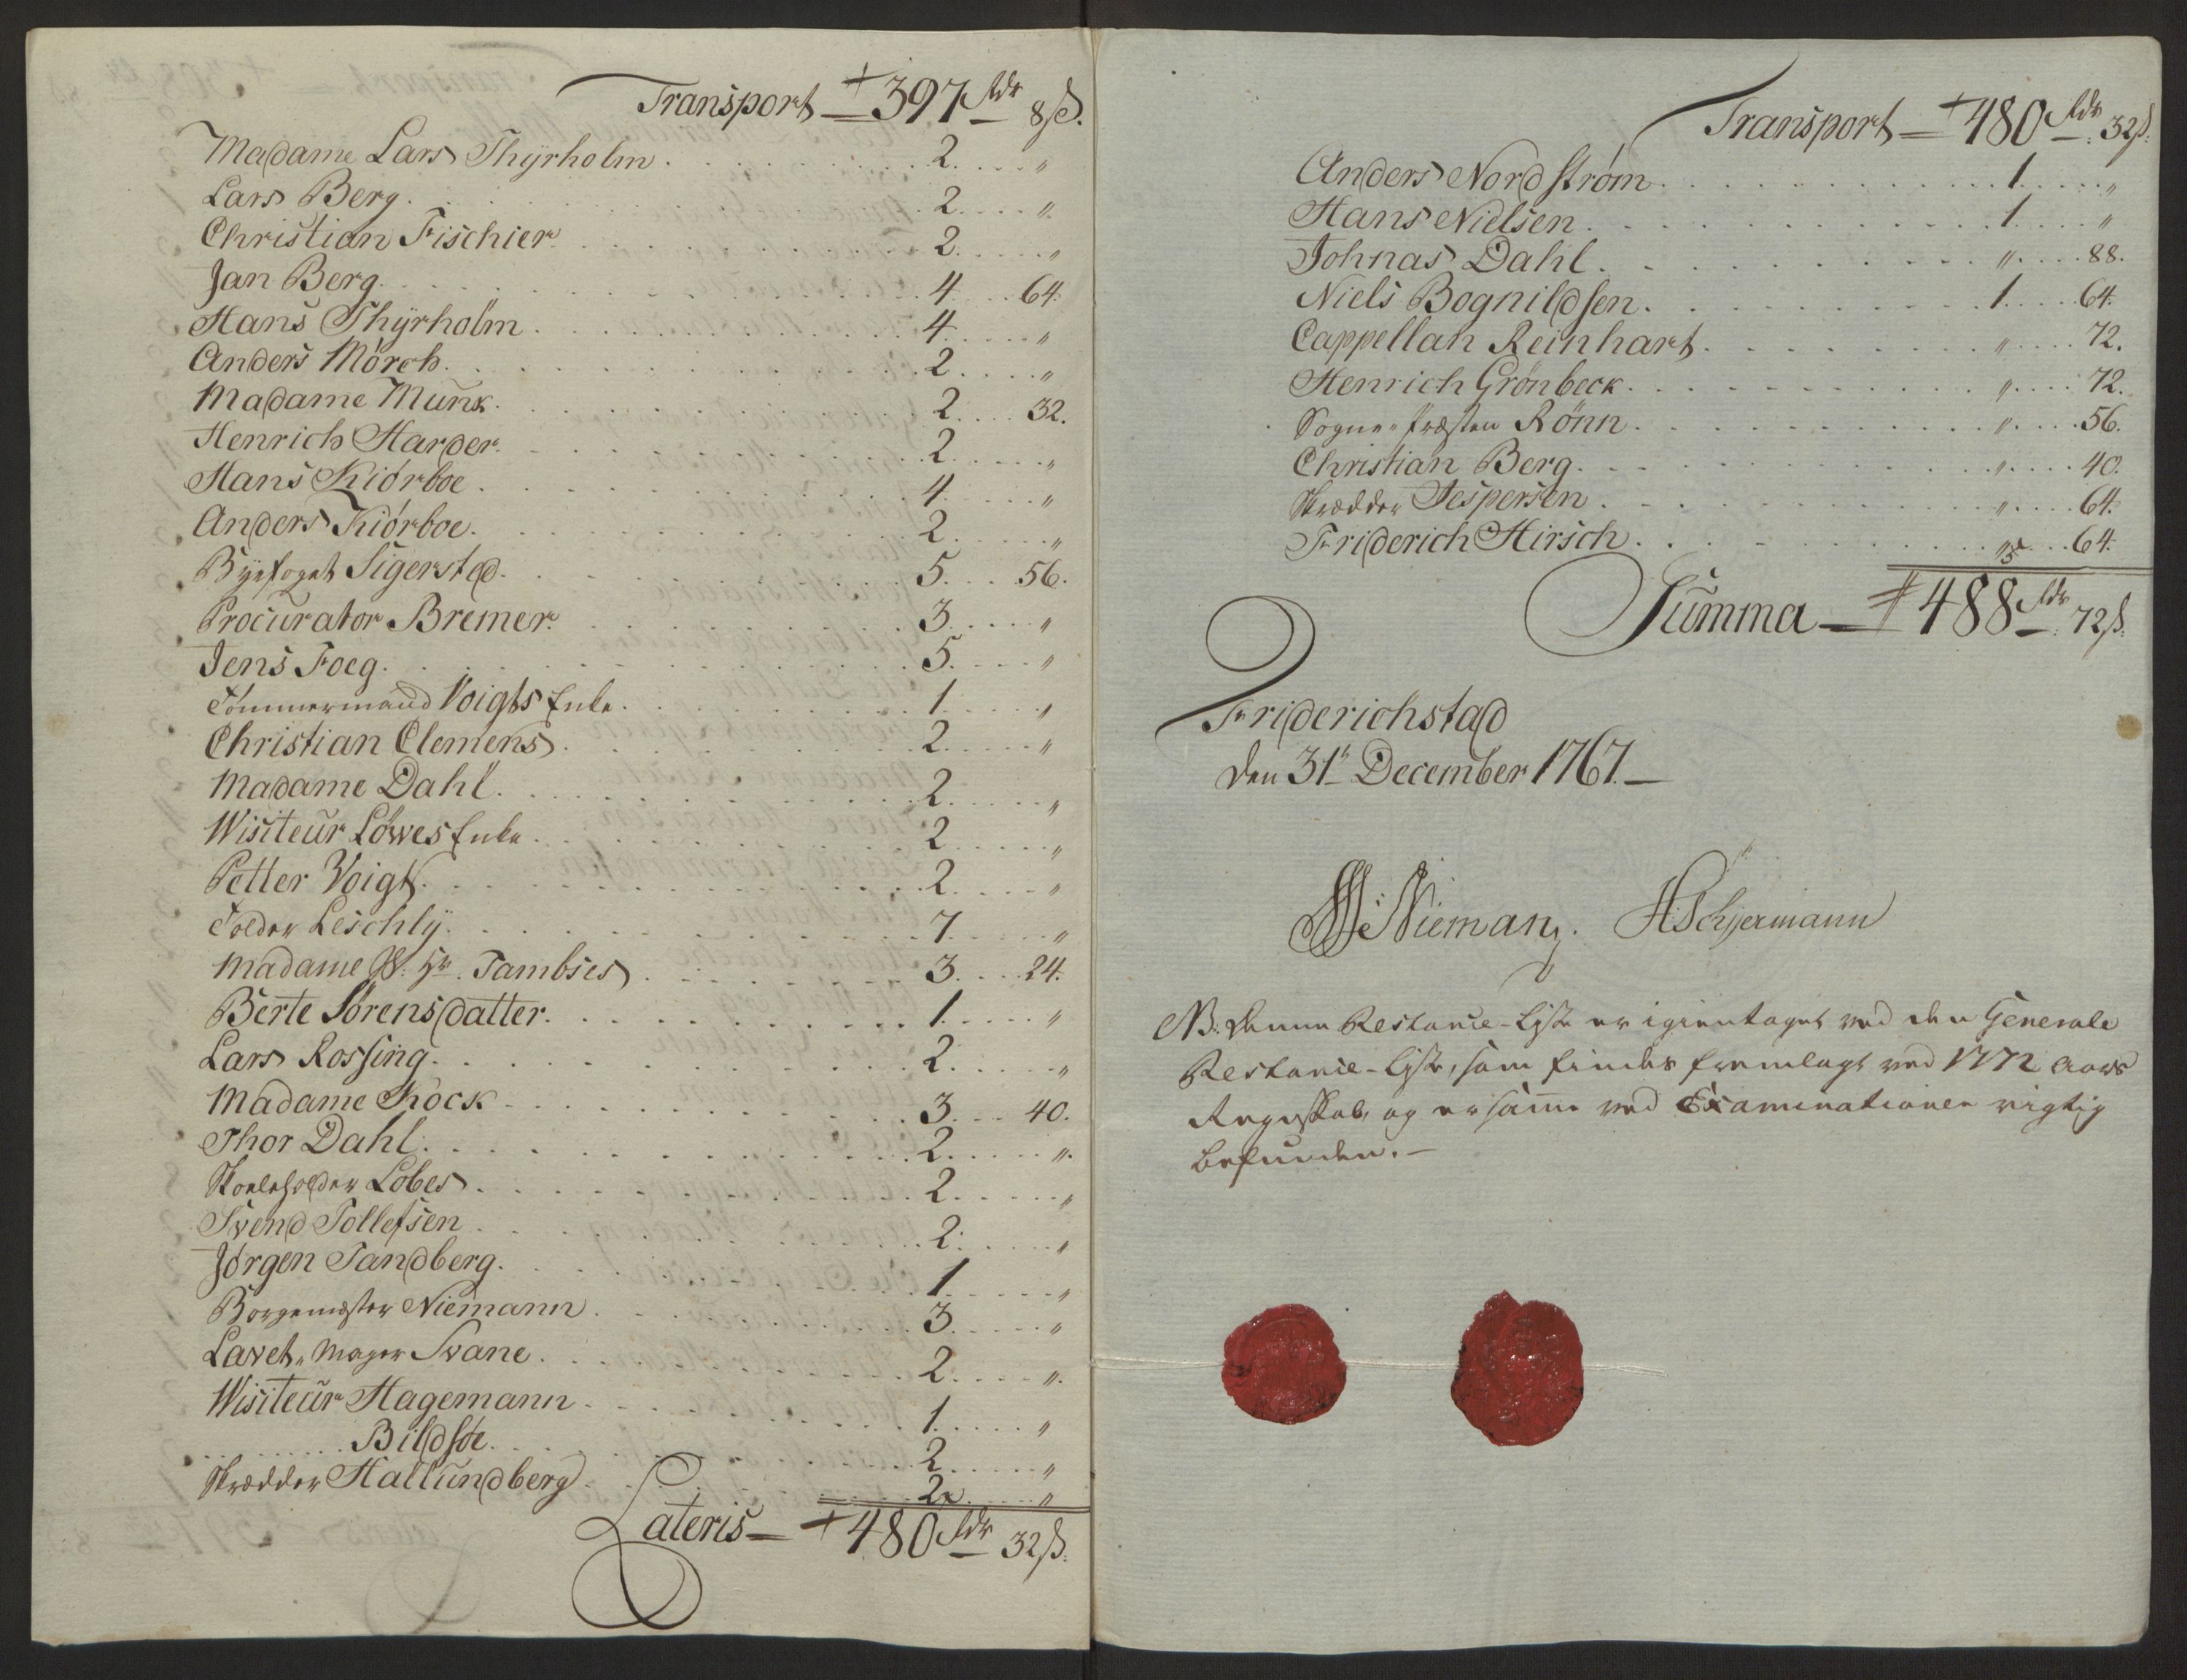 Transport — 397 Rdr 8 ß.
Madame Lars Thyrholm . . . 2. . . "
Lars Berg . . . 2. . . "
Christian Fischier . . . 2. . . "
Jan Berg . . . 4. . . 64.
Hans Thyrholm . . . 4. . . "
Anders Mørch . . . 2. . . "
Madame Munk . . . 2. . . 32.
Henrich Harder . . . 2. . . "
Hans Kiørboe . . . 4. . . "
Anders Kiørboe . . . 2. . . "
Byefoget Sigersted . . . 5. . . 56.
Procurator Bremer . . . 3. . . "
Jens Foeg . . . 5. . . "
Tømmermand Voigts Enke . . . 1. . . "
Christian Clemens . . . 2. . . "
Madame Dahl . . . 2. . . "
Wisiteur Løwes Enke . . . 2. . . "
Petter Voigt . . . 2. . . "
Tolder Leschly . . . 7. . . "
Madame Tambses . . . 3. . . 24.
Berte Sørensdatter . . . 1. . . "
Lars Rossing . . . 2. . . "
Madame Kock . . . 3. . . 40.
Thor Dahl . . . 2. . . "
Skoleholder Lobes . . . 2. . . "
Svend Tollefsen . . . 2. . . "
Jørgen Sandberg . . . 1. . . "
Borgemester Niemann . . . 3. . . "
Lavet-Mager Svane . . . 2. . . "
Wisiteur Hagemann . . . 1. . . "
. . . Bildsøe . . . 2. . . "
Skrædder Hallundberg . . . 2. . . "
Lateris — 480 Rdr 32 ß.
Transport — 480 Rdr 32 ß.
Anders Nordstrøm . . . 1. . . "
Hans Nielsen . . . 1. . . "
Johnas Dahl . . . " . . . 88.
Niels Bognildsen . . . 1. . . 64.
Cappellan Reinhart . . . " . . . 72.
Henrich Grønbeck . . . " . . . 72.
Sogne-Præsten Rønn . . . " . . . 56.
Christian Berg . . . " . . . 40.
Skrædder Jespersen . . . " . . . 64.
Friderich Hirsch . . . " . . . 64.
5
Summa — 488 Rdr 72 ß.
Friderichstad
den 31te December 1767. —
Nieman. H Schjermann
NB: denne Restance-Liste er igientaget ved den Generale
Restance-Liste, som findes fremlagt ved 1772 Aars
Regnskab, og er samme ved Examinationen rigtig
befunden. —